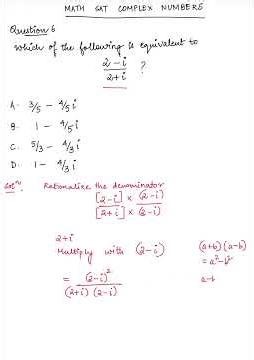 MATH SAT COMPLEX NUMBERS
Question 6
Which of the following is equivalent to
2-i
2+i
?
A. 3/5 - 4/5 i
B. 1 - 4/5 i
C. 5/3 - 4/3 i
D. 1 - 4/3 i
Solⁿ. Rationalize the denominator
[2-i] × (2-i)
[2+i] × (2-i)
2+i
Multiply with (2-i) (a+b)(a-b)
= a²-b²
= (2-i)²
(2+i) (2-i)
a-b